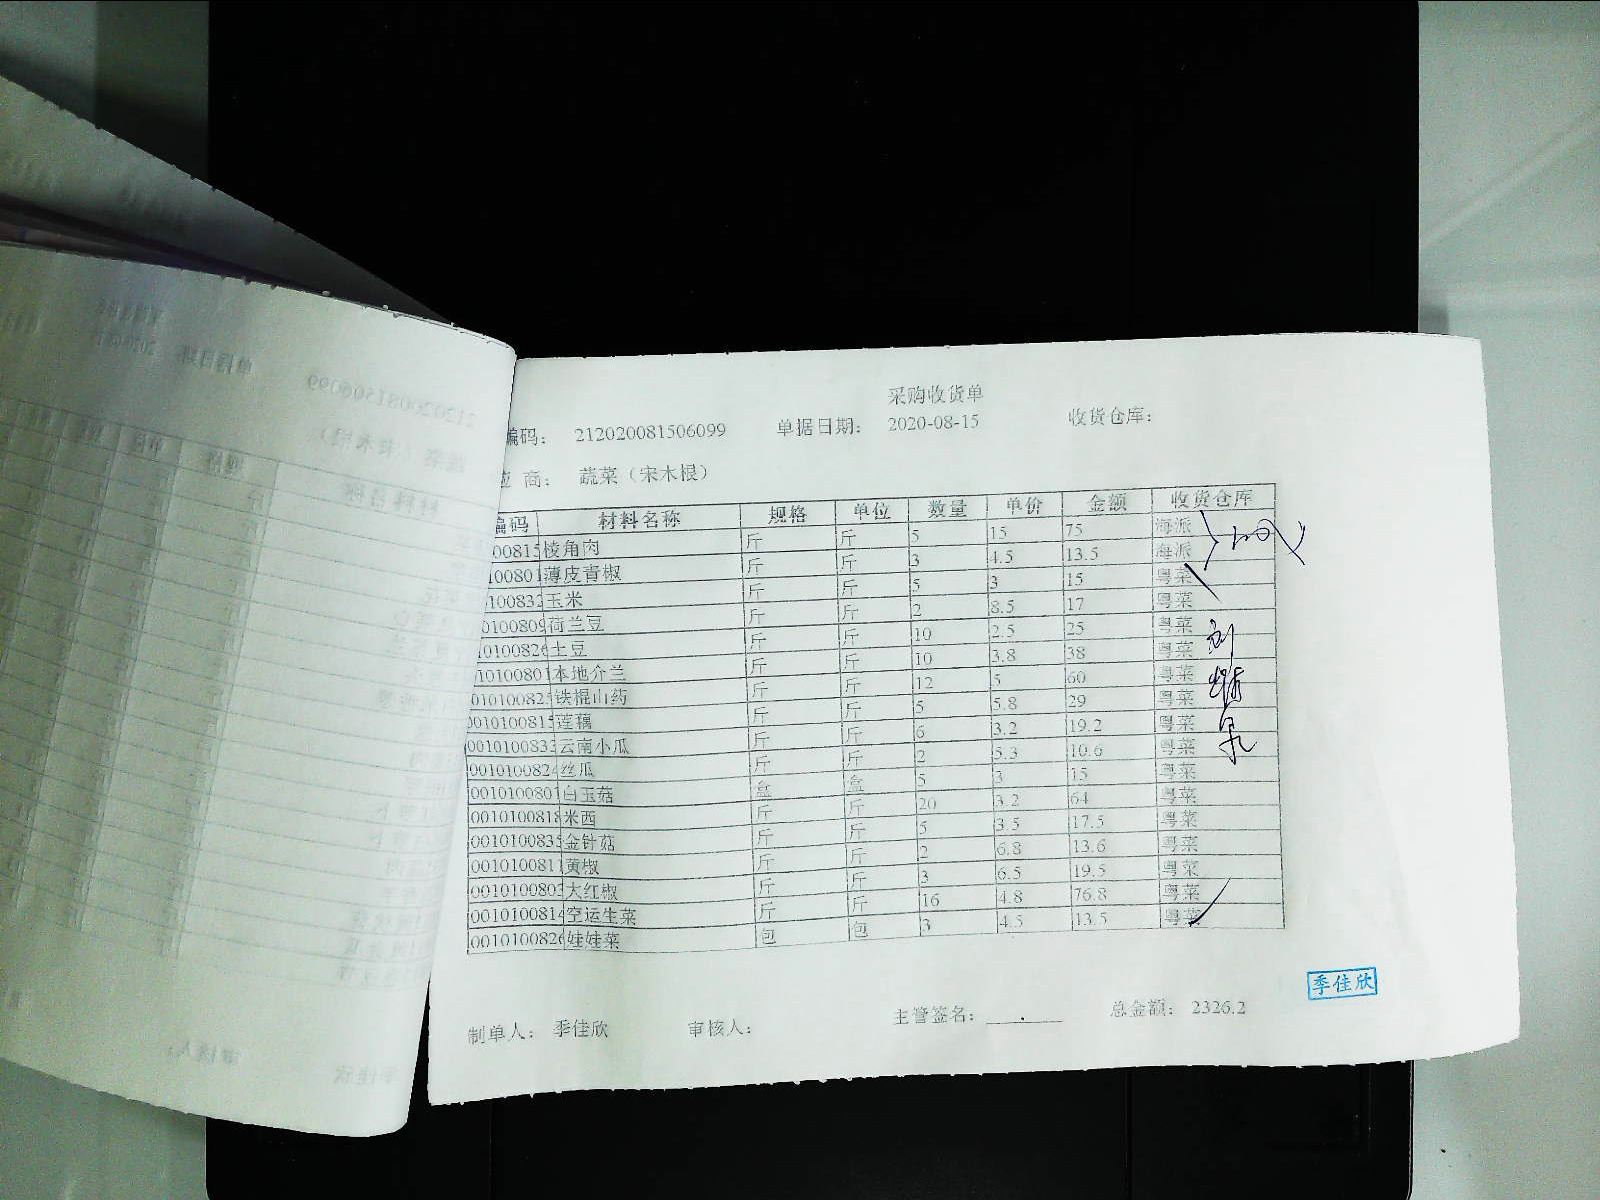 采购收货单
编码： 212020081506099 单据日期： 2020-08-15 收货仓库：
应 商： 蔬菜（宋木根）
编码 材料名称 规格 单位 数量 单价 金额 收货仓库
00815 棱角肉 斤 斤 5 15 75 海派
100801 薄皮青椒 斤 斤 3 4.5 13.5 海派
100832 玉米 斤 斤 5 3 15 粤菜
0100809 荷兰豆 斤 斤 2 8.5 17 粤菜
10100826 土豆 斤 斤 10 2.5 25 粤菜
10100801 本地介兰 斤 斤 10 3.8 38 粤菜
010100825 铁棍山药 斤 斤 12 5 60 粤菜
010100815 莲藕 斤 斤 5 5.8 29 粤菜
0010100833 云南小瓜 斤 斤 6 3.2 19.2 粤菜
001010082 丝瓜 斤 斤 2 5.3 10.6 粤菜
0010100801 白玉菇 盒 盒 5 3 15 粤菜
0010100818 米西 斤 斤 20 3.2 64 粤菜
0010100835 金针菇 斤 斤 5 3.5 17.5 粤菜
0010100811 黄椒 斤 斤 2 6.8 13.6 粤菜
001010080 大红椒 斤 斤 3 6.5 19.5 粤菜
0010100814 空运生菜 斤 斤 16 4.8 76.8 粤菜
0010100826 娃娃菜 包 包 3 4.5 13.5 粤菜
季佳欣
制单人： 季佳欣 审核人： 主管签名： 总金额： 2326.2